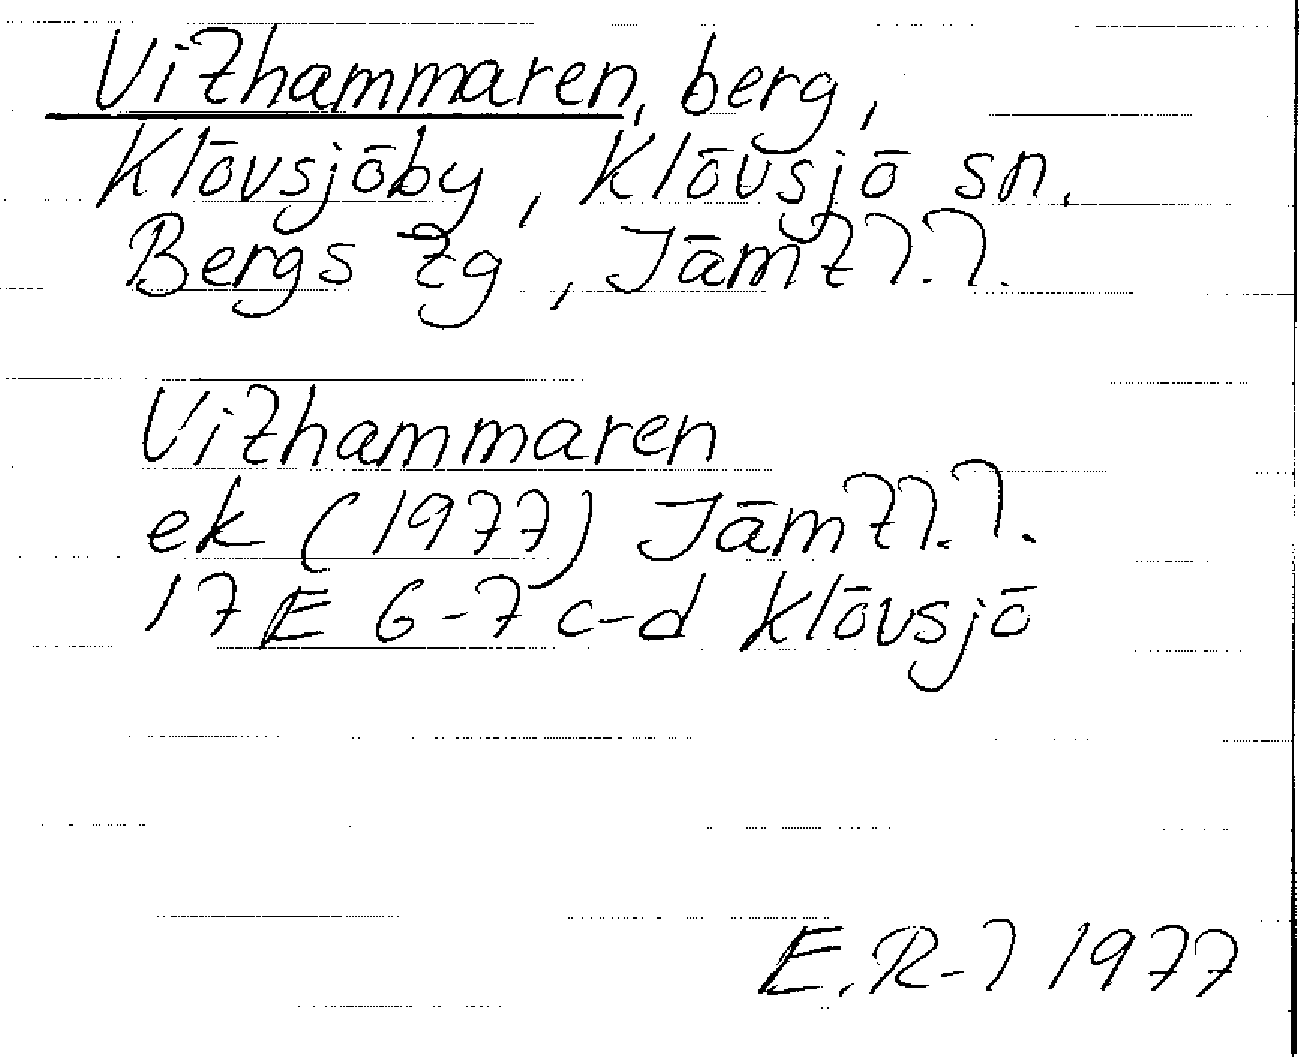 Vithammaren, berg,
Klövsjöby, Klövsjö sn.
Bergs tg, Jämtl.l.
Vithammaren
ek (1977) Jämtl.l.
17E 6-7 c-d Klövsjö
E.R-l 1977